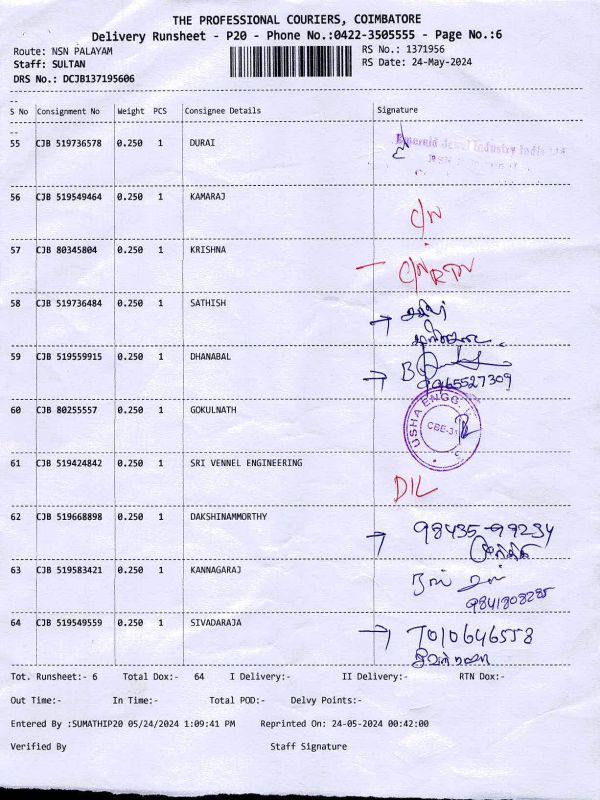 THE PROFESSIONAL COURIERS, COIMBATORE
Delivery Runsheet - P20 - Phone No.:0422-3505555 - Page No.:6
Route: NSN PALAYAM RS No.: 1371956
Staff: SULTAN RS Date: 24-May-2024
DRS No.: DCJB137195606
S No Consignment No Weight PCS Consignee Details Signature
55 CJB 519736578 0.250 1 DURAI Emerald Jewel Industry India
56 CJB 519549464 0.250 1 KAMARAJ C/N
57 CJB 80345804 0.250 1 KRISHNA C/N RTN
58 CJB 519736484 0.250 1 SATHISH
59 CJB 519559915 0.250 1 DHANABAL
9965527309
60 CJB 80255557 0.250 1 GOKULNATH USHA ENGG CBE-31
61 CJB 519424842 0.250 1 SRI VENNEL ENGINEERING D/L
62 CJB 519668898 0.250 1 DAKSHINAMMORTHY 98435-99234
63 CJB 519583421 0.250 1 KANNAGARAJ
9841808285
64 CJB 519549559 0.250 1 SIVADARAJA 7010646558
Tot. Runsheet:- 6 Total Dox:- 64 I Delivery:- II Delivery:- RTN Dox:-
Out Time:- In Time:- Total POD:- Delvy Points:-
Entered By :SUMATHIP20 05/24/2024 1:09:41 PM Reprinted On: 24-05-2024 00:42:00
Verified By Staff Signature